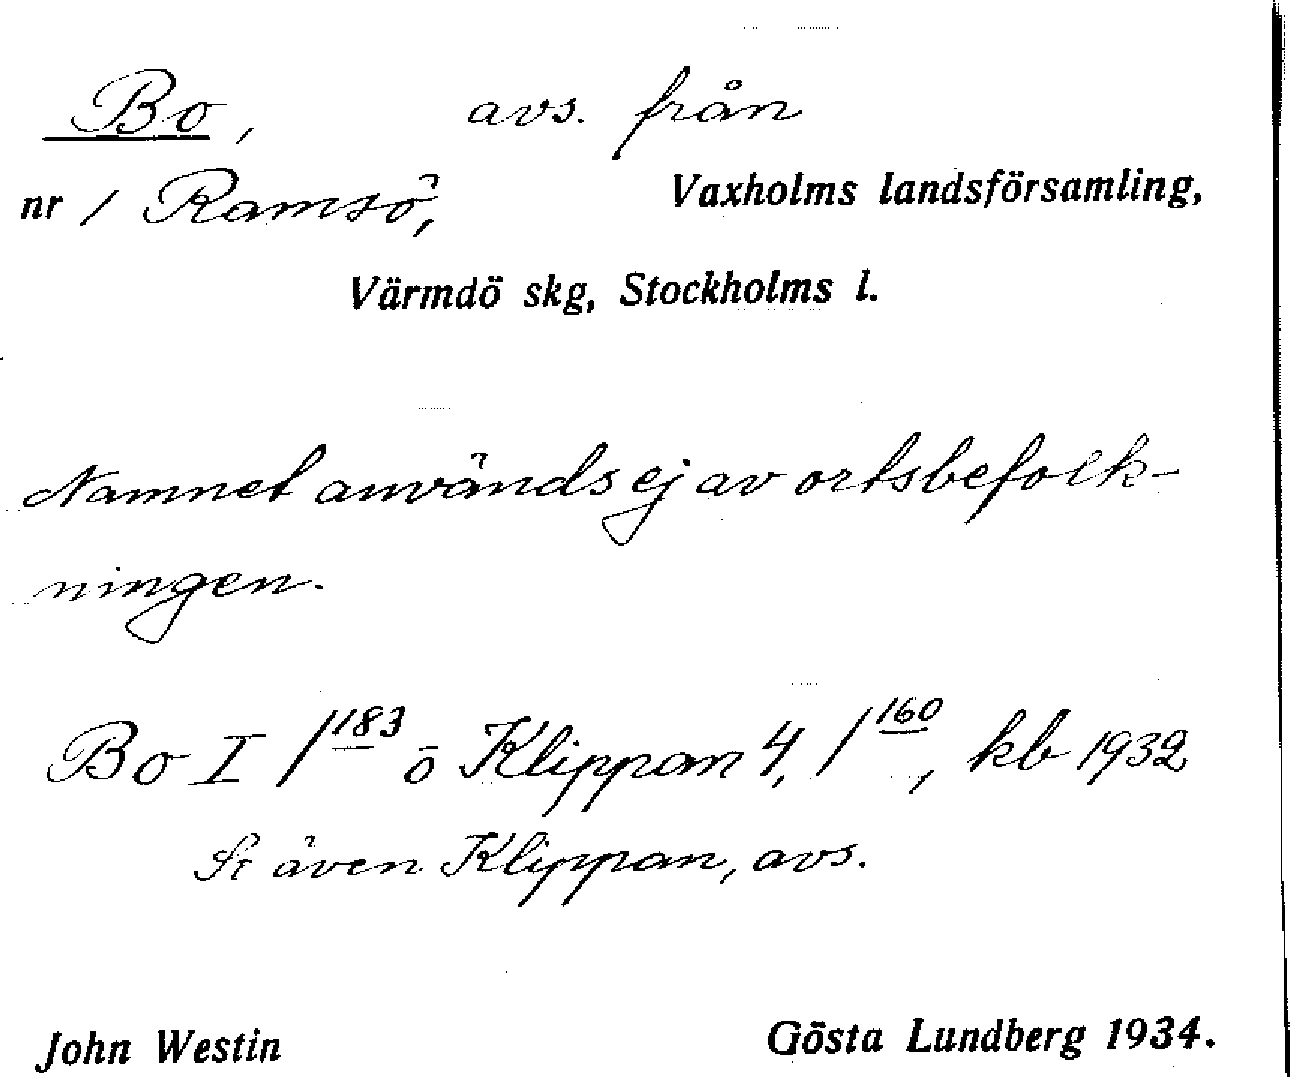 Bo, avs. från
nr 1 Ramsö, Vaxholms landsförsamling,
Värmdö skg, Stockholms l.
Namnet används ej av ortsbefolk-
ningen.
Bo I 1 183 o Klippan 4, 1 160, kb 1932
Se även Klippan, avs.
John Westin Gösta Lundberg 1934.